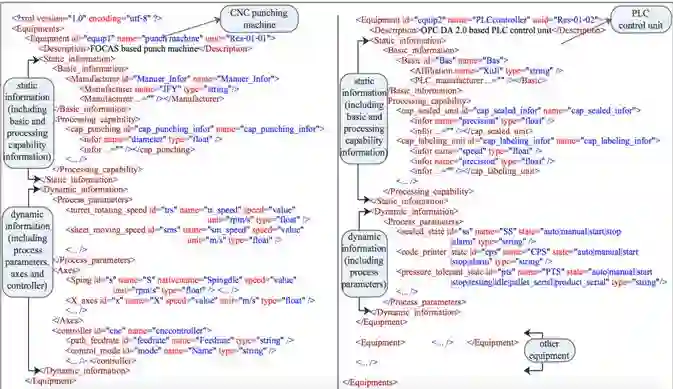 <?xml version="1.0" encoding="utf-8" ?>
<Equipments>
<Equipment id="equip1" name="punch machine" uuid="Res-01-01">
<Description>FOCAS based punch machine</Description>
<Static_information>
<Basic_information>
<Manufacturer id="Manuer_Infor" name="Manuer_Infor">
<Manufacturer name="JFY" type="string"/>
<Manufacturer ...="" /></Manufacturer>
</Basic_information>
<Processing_capability>
<cap_punching id="cap_punching_infor" name="cap_punching_infor">
<infor name="diameter" type="float" />
<infor ...="" /></cap_punching>
<... />
</Processing_capability>
</Static_information>
<Dynamic_information>
<Process_parameters>
<turret_rotating_speed id="trs" name="tr_speed" speed="value"
unit="rpm/s" type="float" />
<sheet_moving_speed id="sms" name="sm_speed" speed="value"
unit="m/s" type="float" />
<... />
</Process_parameters>
<Axes>
<Sping id="s" name="S" nativename="Spingdle" speed="value"
unit="rpm/s" type="float" /> <... />
<X_axes id="x" name="X" speed="value" unit="m/s" type="float" />
<... />
</Axes>
<controller id="cnc" name="cnccontroller">
<path_feedrate id="feedrate" name="Feedrate" type="string" />
<control_mode id="mode" name="Name" type="string" />
<... /> </controller>
</Dynamic_information>
</Equipment>
CNC punching
machine
static
information
(including
basic and
processing
capability
information)
dynamic
information
(including
process
parameters,
axes and
controller)
<Equipment id="equip2" name="PLCcontroller" uuid="Res-01-02">
<Description>OPC DA 2.0 based PLC control unit</Description>
<Static_information>
<Basic_information>
<Basic id="Bas" name="Bas">
<Affiliation name="XinJi" type="string" />
<PLC_manufacturer ...="" /></Basic>
</Basic_information>
<Processing_capability>
<cap_sealed_unit id="cap_sealed_infor" name="cap_sealed_infor">
<infor name="precision" type="float" />
<infor ...="" /></cap_sealed_unit>
<cap_labeling_unit id="cap_labeling_infor" name="cap_labeling_infor">
<infor name="speed" type="float" />
<infor name="precision" type="float" />
<infor ...="" /></cap_labeled_unit>
<... />
</Processing_capability>
</Static_information>
<Dynamic_information>
<Process_parameters>
<sealed_state id="ss" name="SS" state="auto|manual|start|stop
|alarm" type="string" />
<code_printer_state id="cps" name="CPS" state="auto|manual|start
|stop|alarm" type="string" />
<pressure_tolerant_state id="pts" name="PTS" state="auto|manual|start
|stop|testing|idle|pallet_serial|product_serial" type="string" />
<... />
</Process_parameters>
</Dynamic_information>
</Equipment>
<Equipment> <... /> </Equipment>
<... />
</Equipments>
PLC
control unit
static
information
(including
basic and
processing
capability
information)
dynamic
information
(including
process
parameters)
other
equipment